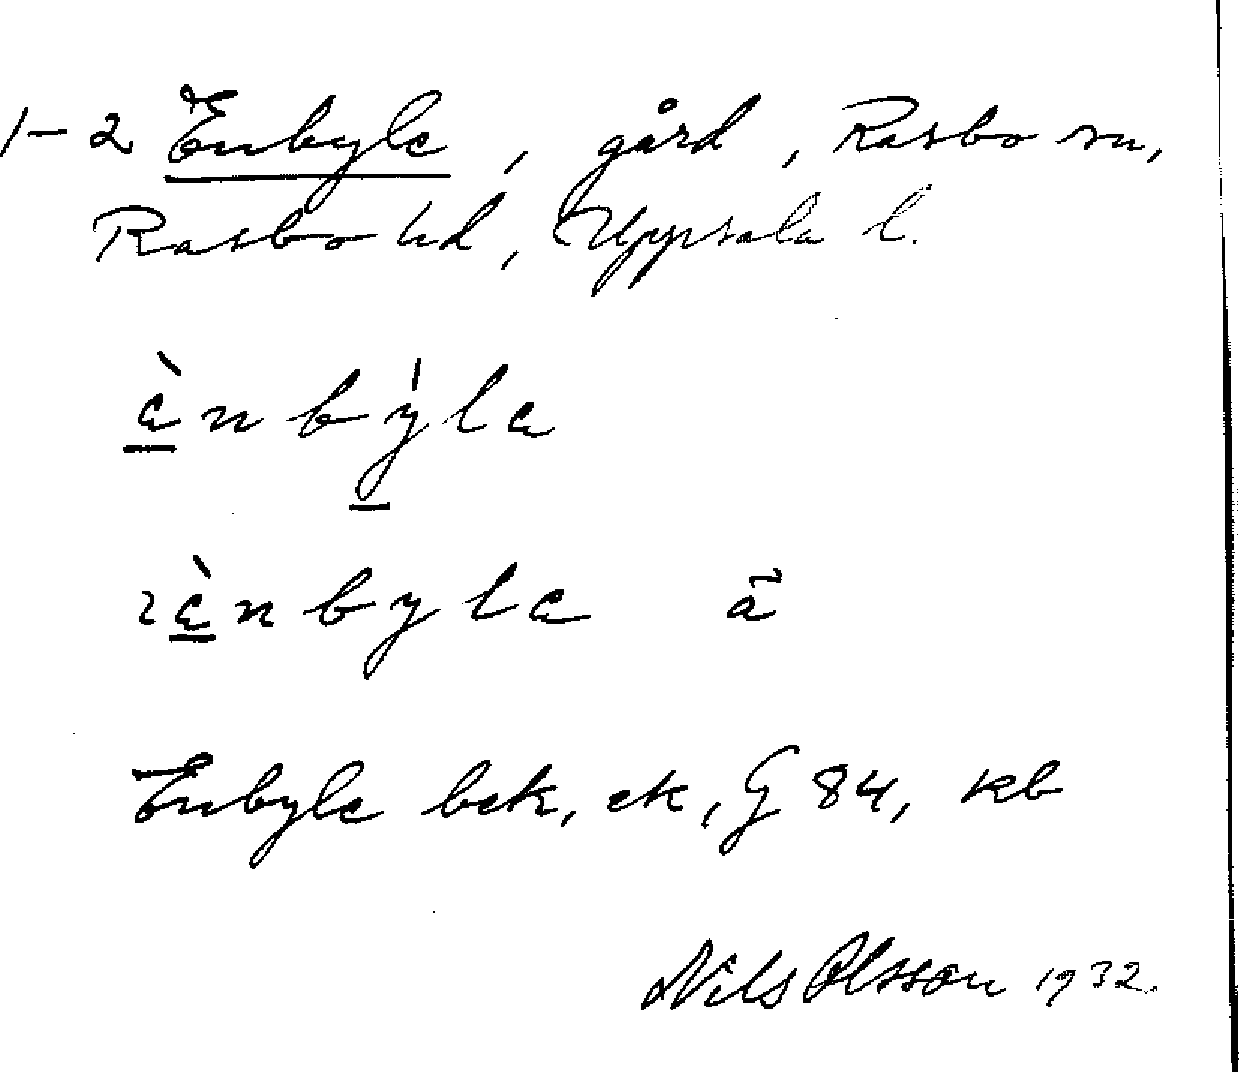 1-2 Enbyle, gård, Rasbo sn,
Rasbo hd, Uppsala l.
ènbýle
ènbyle ã
Enbyle bek, ek, G 84, kb
Nils Olsson 1932.